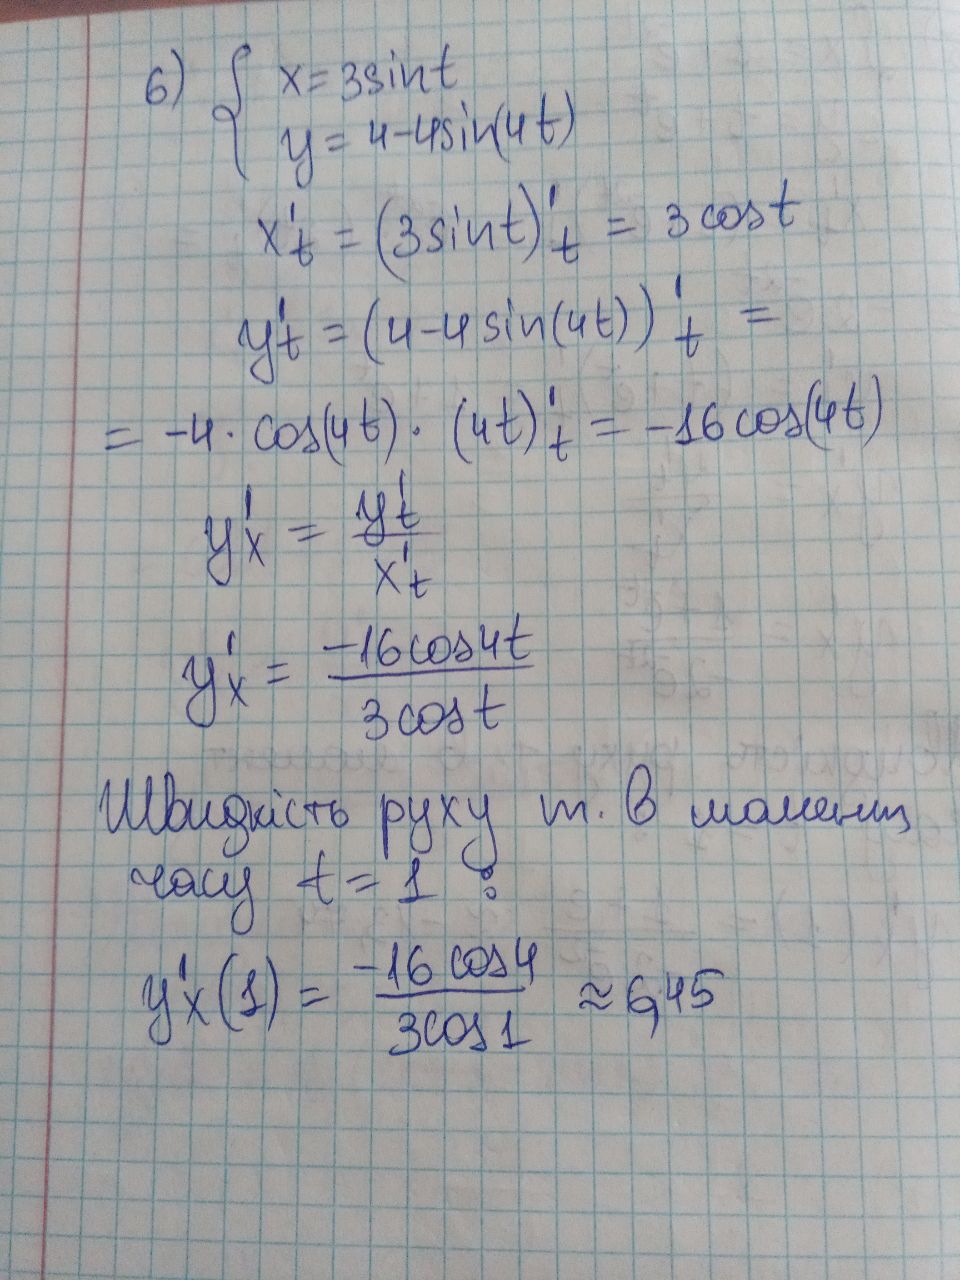 6) { x = 3sint
y = 4-4sin(4t)
x't = (3sint)'t = 3cost
y't = (4-4sin(4t))'t =
= -4 · cos(4t) · (4t)'t = -16cos(4t)
y'x = y't / x't
y'x = -16cos4t / 3cost
Швидкість руху т. в момент
часу t = 1 :
y'x(1) = -16cos4 / 3cos1 ≈ 6,45